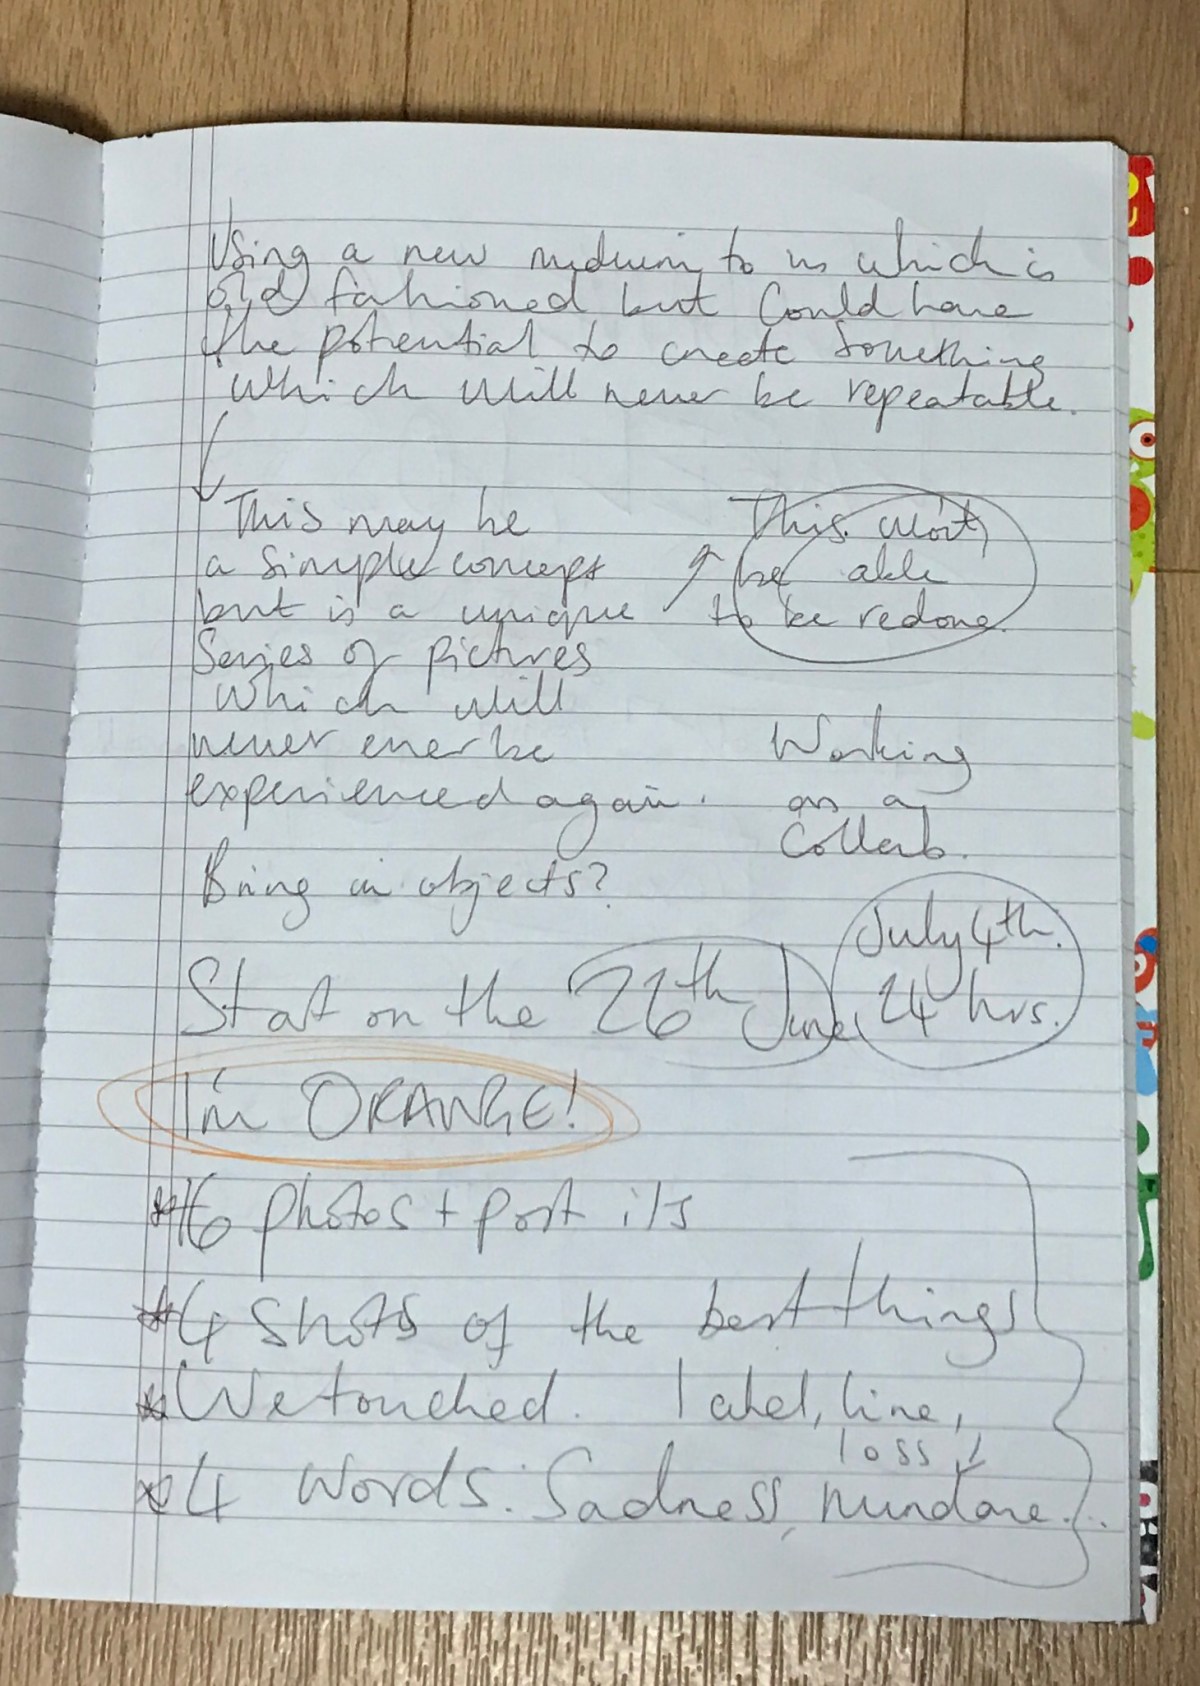 Using a new medium to us which is
old fashioned but could have
the potential to create something
which will never be repeatable.
This may be
a simple concept
but is a unique
Series of pictures
which will
never ever be
experienced again.
This won't
be able
to be redone.
Working
as a
Collab.
Bring in objects?
Start on the 26th June
July 4th.
24 hrs.
I'm ORANGE!
*16 photos + post its
*4 shots of the best things
*We touched. label, line,
loss
*4 words: Sadness, mundane...